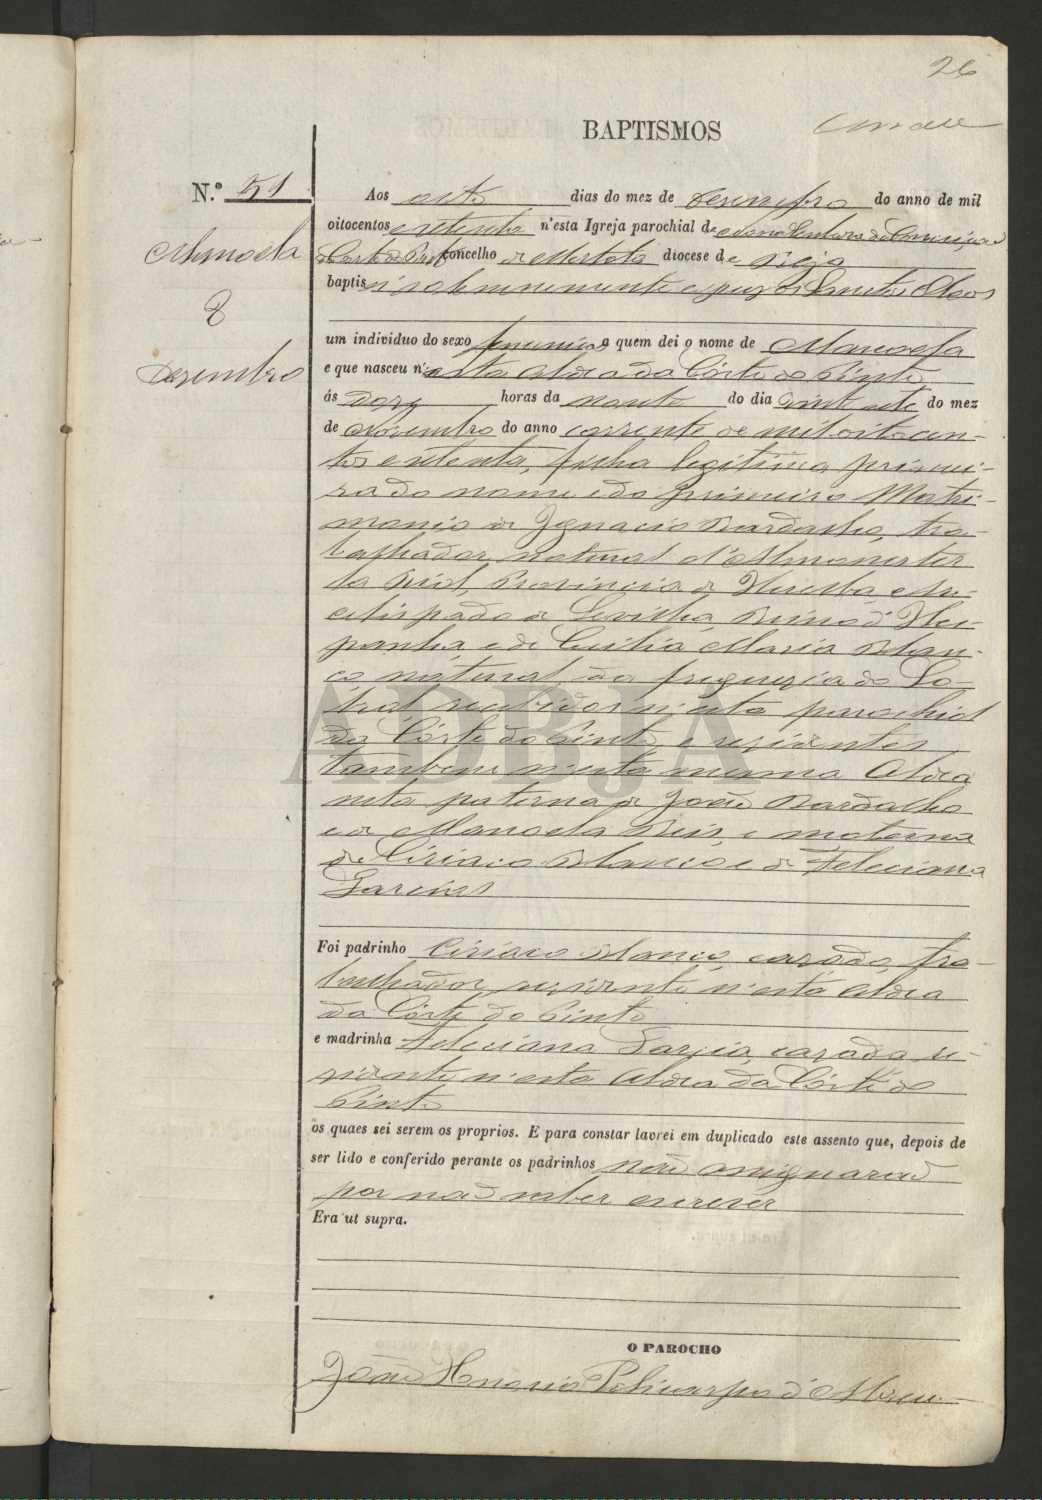 26
BAPTISMOS
N.º 51
Aos oito dias do mez de Dezembro do anno de mil
oitocentos e setenta n'esta Igreja parochial de Nossa Senhora da Conceição
da Corte do Pinto concelho de Mertola diocese de Beja
baptisei solemnemente e puz os Sanctos Oleos
Manoela
8
Dezembro
um individuo do sexo femenino a quem dei o nome de Manoela
e que nasceu n'esta Aldea da Côrte do Pinto
ás doze horas da noute do dia vinte sete do mez
de Novembro do anno corrente de mil oitocen-
tos e setenta, filha legitima primei-
ra do nome e do primeiro Matri-
monio de Ignacio Bardalho, tra-
balhador, natural d'Almonester
la Rial, Provincia de Huelba, Ar-
cebispado de Sevilha, Reino d'Hes-
panha, e de Cecilia Maria Blan-
co natural da freguezia do So-
bral recebidos n'esta parochial
da Côrte do Pinto, e rezidentes
tambem n'esta mesma Aldea
neta paterna de João Bardalho
e de Manoela Reis, e materna
de Ciriaco Blanco e de Feleciana
Garcias
Foi padrinho Ciriaco Blanco, cazado, tra-
balhador rezidente n'esta Aldea
da Côrte do Pinto
e madrinha Feleciana Garcia, cazada re-
zidente n'esta Aldea da Côrte do
Pinto
os quaes sei serem os proprios. E para constar lavrei em duplicado este assento que, depois de
ser lido e conferido perante os padrinhos não assignarão
por não saber escrever
Era ut supra.
O PAROCHO
João Honorio Policarpo d'Abreu
ADBJA